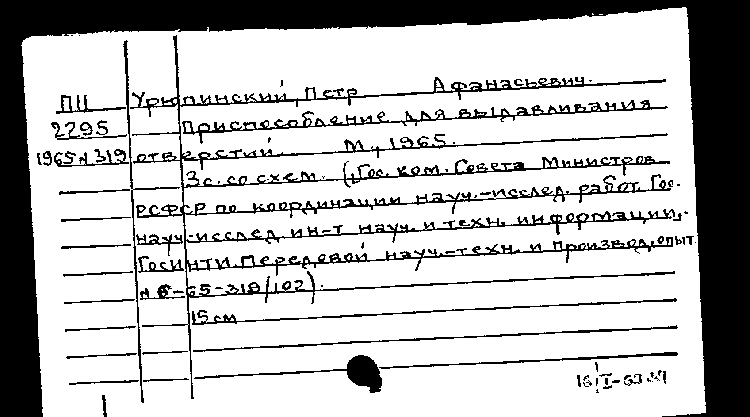 ПП Урюпинский, Петр Афанасьевич.
2795 Приспособление для выдавливания
1965 N 319 отверстий. М., 1965.
3 с. со схем. (Гос. ком. Совета Министров
РСФСР по координации науч.-исслед. работ. Гос.
науч.-исслед. ин-т науч. и техн. информации,-
ГосИНТИ. Передовой науч.-техн. и производ. опыт
N 6-65-319/102).
15 см